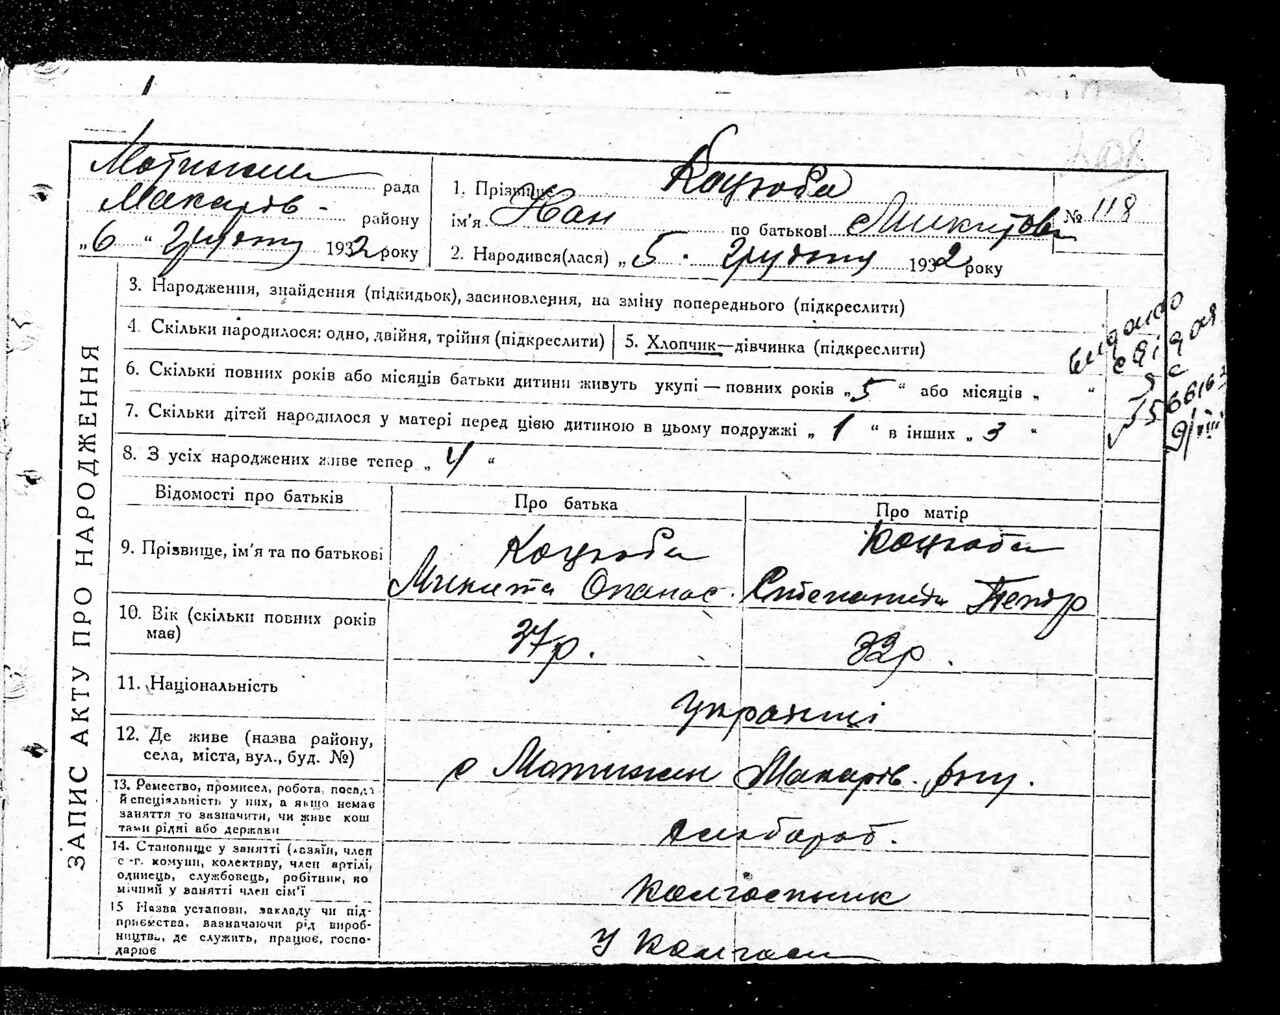 208
Мотижин рада
Макарів - району
„6“ грудню 1932 року
1. Прізвище Коцюба
ім'я Іван по батькові Микитов
№ 118
2. Народився(лася) „5. грудню 1932 року
ЗАПИС АКТУ ПРО НАРОДЖЕННЯ
3. Народження, знайдення (підкидьок), засиновлення, на зміну попереднього (підкреслити)
4. Скільки народилося: одно, двійня, трійня (підкреслити)
5. Хлопчик—дівчинка (підкреслити)
6. Скільки повних років або місяців батьки дитини живуть укупі — повних років „5“ або місяців „ “
7. Скільки дітей народилося у матері перед цією дитиною в цьому подружжі „1“ в інших „3“
8. З усіх народжених живе тепер „4“
видано
9/VIII
Відомості про батьків
Про батька
Про матір
9. Прізвище, ім'я та по батькові
Коцюба
Микита Опанас.
Коцюба
Степанида Петр
10. Вік (скільки повних років
має)
37р.
32р.
11. Національність
Українці
12. Де живе (назва району,
села, міста, вул., буд. №)
с Мотижин Макарів. рну.
13. Ремество, промисел, робота, посада
й спеціяльність у них, а якщо немає
заняття то зазначити, чи живе кош
тами рідні або держави
хлібороб.
14. Становище у занятті (хазяїн, член
с.-г. комуни, колективу, член артілі,
одинець, службовець, робітник, по
мічний у занятті член сім'ї
колгоспник
15 Назва установи, закладу чи під-
приємства, вазначаючи рід вироб-
ництва, де служить, працює, госпо-
дарює
У колгоспі